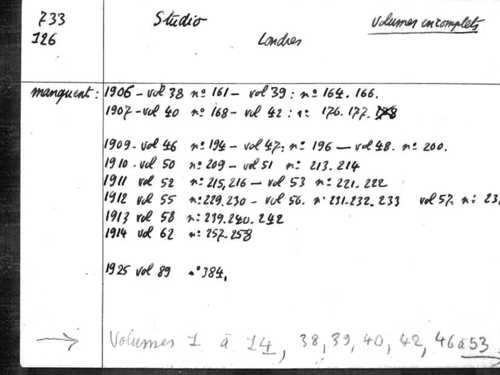 733 Studio Volumes incomplets
126 Londres
manquent : 1906 - vol 38 nos 161 - vol 39 : no 164. 166.
1907 - vol 40 no 168 - vol 42 : no 176. 177.
1909 - vol 46 no 194 - vol 47 : no 196 - vol 48. no 200.
1910 - vol 50 no 209 - vol 51 no 213. 214
1911 vol 52 no 215, 216 - vol 53 no 221. 222
1912 vol 55 no 229, 230 - vol 56. no 231. 232. 233 vol 57. no 23
1913 vol 58 no 239. 240. 242
1914 vol 62 no 257. 258
1925 vol 89 no 384.
→ Volumes 1 à 14, 38, 39, 40, 42, 46 à 53